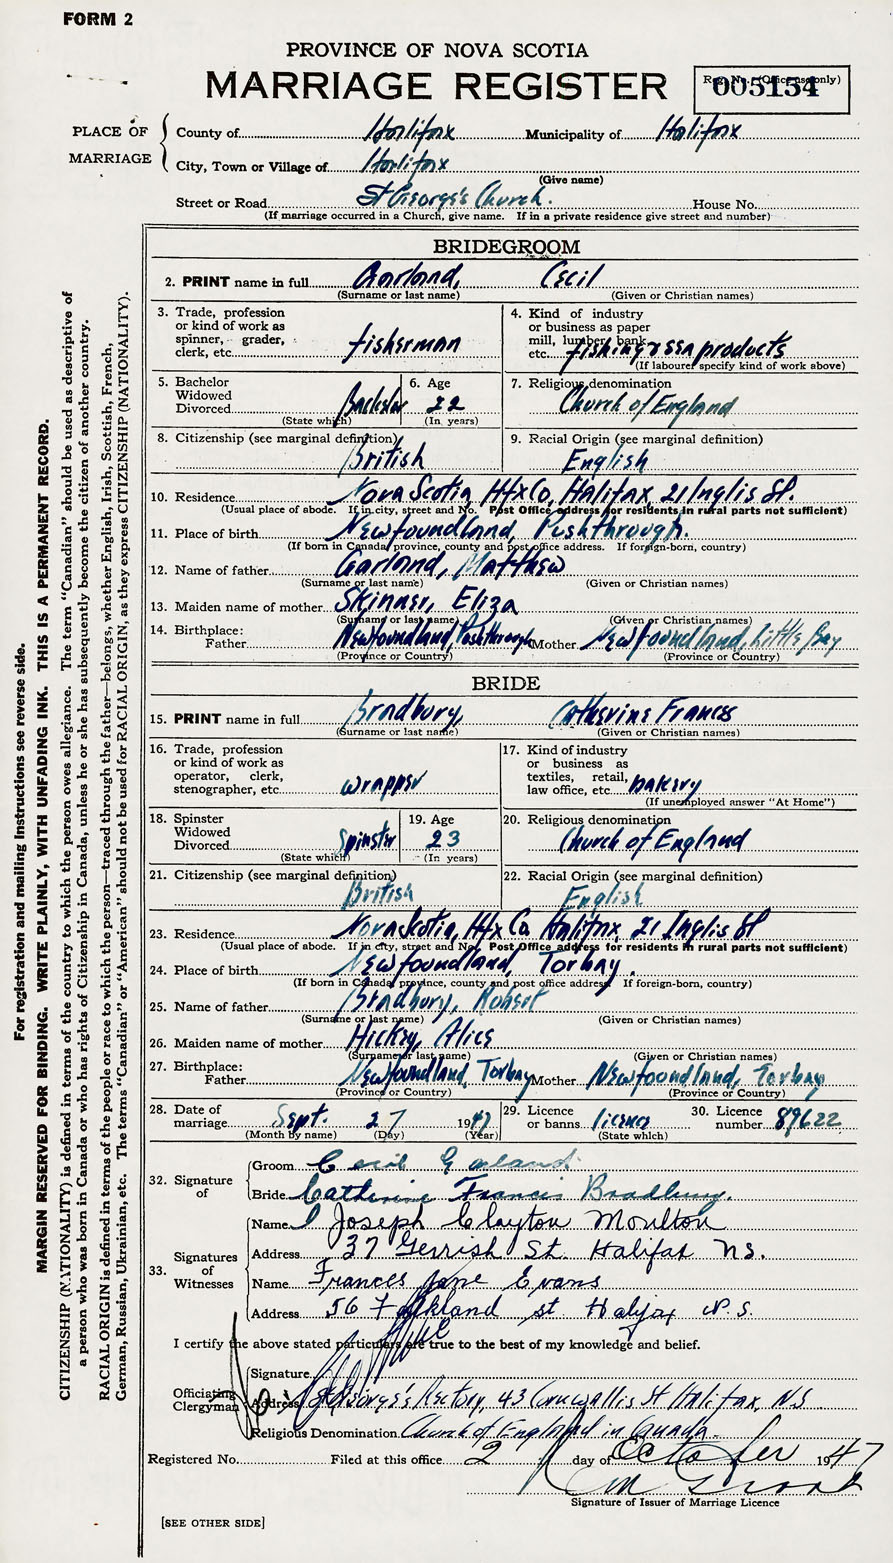 FORM 2
PROVINCE OF NOVA SCOTIA
MARRIAGE REGISTER
Reg. No. (Office use only)
005154
PLACE OF MARRIAGE
County of Halifax Municipality of Halifax
City, Town or Village of Halifax
(Give name)
Street or Road St George's Church. House No.
(If marriage occurred in a Church, give name. If in a private residence give street and number)
BRIDEGROOM
2. PRINT name in full Garland, Cecil
(Surname or last name) (Given or Christian names)
3. Trade, profession or kind of work as spinner, grader, clerk, etc. fisherman
4. Kind of industry or business as paper mill, lumber, bank, etc. fishing & sea products
(If labourer specify kind of work above)
5. Bachelor Widowed Divorced Bachelor
(State which)
6. Age 22
(In years)
7. Religious denomination Church of England
8. Citizenship (see marginal definition) British
9. Racial Origin (see marginal definition) English
10. Residence Nova Scotia, Hfx Co, Halifax, 21 Inglis St.
(Usual place of abode. If in city, street and No. Post Office address for residents in rural parts not sufficient)
11. Place of birth Newfoundland, Pushthrough.
(If born in Canada, province, county and post office address. If foreign-born, country)
12. Name of father Garland, Matthew
(Surname or last name) (Given or Christian names)
13. Maiden name of mother Skinner, Eliza
(Surname or last name) (Given or Christian names)
14. Birthplace: Father Newfoundland, Pushthrough Mother Newfoundland, Little Bay
(Province or Country) (Province or Country)
BRIDE
15. PRINT name in full Bradbury, Catherine Frances
(Surname or last name) (Given or Christian names)
16. Trade, profession or kind of work as operator, clerk, stenographer, etc. wrapper
17. Kind of industry or business as textiles, retail, law office, etc. bakery
(If unemployed answer "At Home")
18. Spinster Widowed Divorced Spinster
(State which)
19. Age 23
(In years)
20. Religious denomination Church of England
21. Citizenship (see marginal definition) British
22. Racial Origin (see marginal definition) English
23. Residence Nova Scotia, Hfx Co, Halifax, 21 Inglis St
(Usual place of abode. If in city, street and No. Post Office address for residents in rural parts not sufficient)
24. Place of birth Newfoundland, Torbay.
(If born in Canada, province, county and post office address. If foreign-born, country)
25. Name of father Bradbury, Robert
(Surname or last name) (Given or Christian names)
26. Maiden name of mother Hickey, Alice
(Surname or last name) (Given or Christian names)
27. Birthplace: Father Newfoundland, Torbay Mother Newfoundland, Torbay
(Province or Country) (Province or Country)
28. Date of marriage Sept. 27 1947
(Month by name) (Day) (Year)
29. Licence or banns licence
(State which)
30. Licence number 89622
32. Signature of
Groom Cecil Garland
Bride Catherine Francis Bradbury.
33. Signatures of Witnesses
Name Joseph Clayton Moulton
Address 37 Gerrish St. Halifax N.S.
Name Frances Jane Evans
Address 56 Falkland st Halifax N.S.
I certify the above stated particulars are true to the best of my knowledge and belief.
Officiating Clergyman
Signature
Address St George's Rectory, 43 Cornwallis St Halifax, N.S
Religious Denomination Church of England in Canada.
Registered No. Filed at this office 2 day of October 1947
Signature of Issuer of Marriage Licence
[SEE OTHER SIDE]
For registration and mailing instructions see reverse side.
MARGIN RESERVED FOR BINDING. WRITE PLAINLY, WITH UNFADING INK. THIS IS A PERMANENT RECORD.
CITIZENSHIP (NATIONALITY) is defined in terms of the country to which the person owes allegiance. The term "Canadian" should be used as descriptive of
a person who was born in Canada or who has rights of Citizenship in Canada, unless he or she has subsequently become the citizen of another country.
RACIAL ORIGIN is defined in terms of the people or race to which the person—traced through the father—belongs, whether English, Irish, Scottish, French,
German, Russian, Ukrainian, etc. The terms "Canadian" or "American" should not be used for RACIAL ORIGIN, as they express CITIZENSHIP (NATIONALITY).